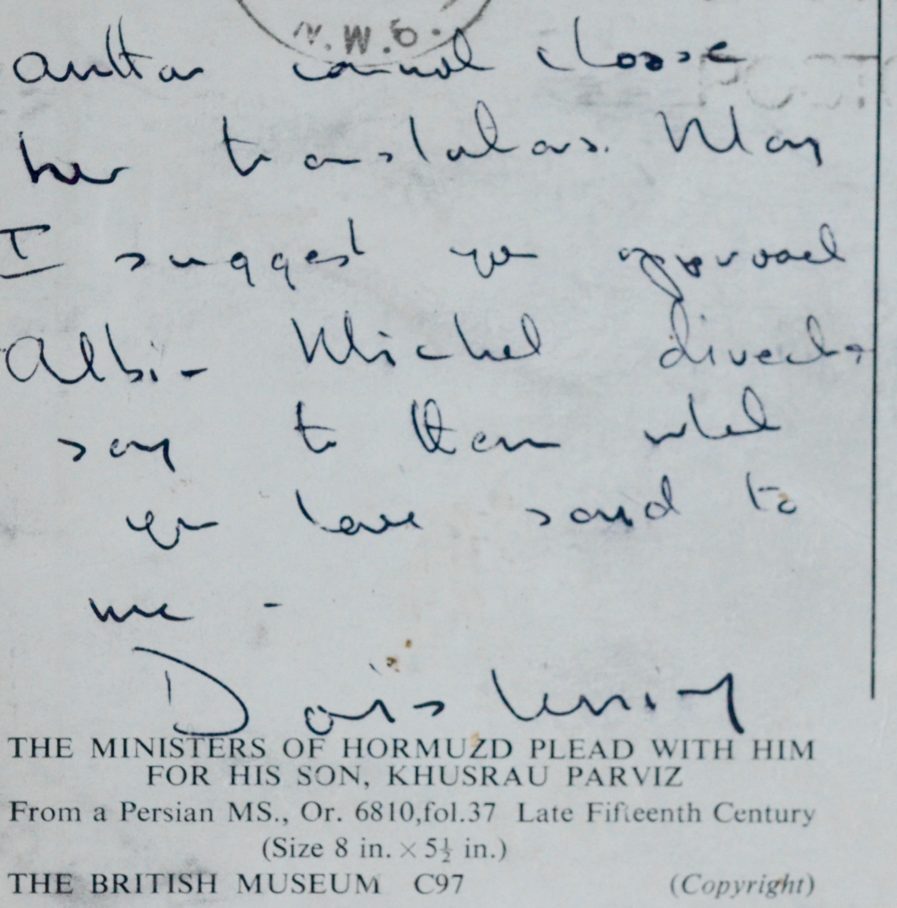 N.W.6.
author cannot choose
her translators. May
I suggest you approach
Albin Michel direct,
say to them what
you have said to
me -
Doris Lessing
THE MINISTERS OF HORMUZD PLEAD WITH HIM
FOR HIS SON, KHUSRAU PARVIZ
From a Persian MS., Or. 6810,fol.37 Late Fifteenth Century
(Size 8 in. × 5½ in.)
THE BRITISH MUSEUM C97 (Copyright)